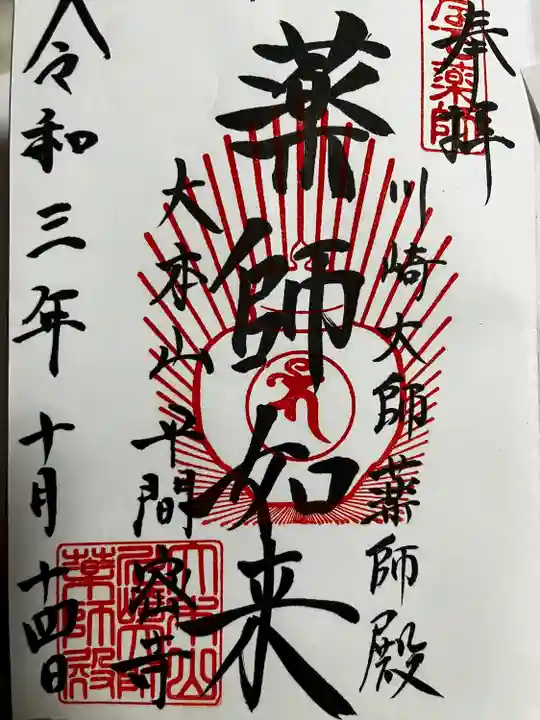 奉拝
川崎大師薬師殿
薬師如来
大本山平間寺
令和三年十月十四日
薬師殿